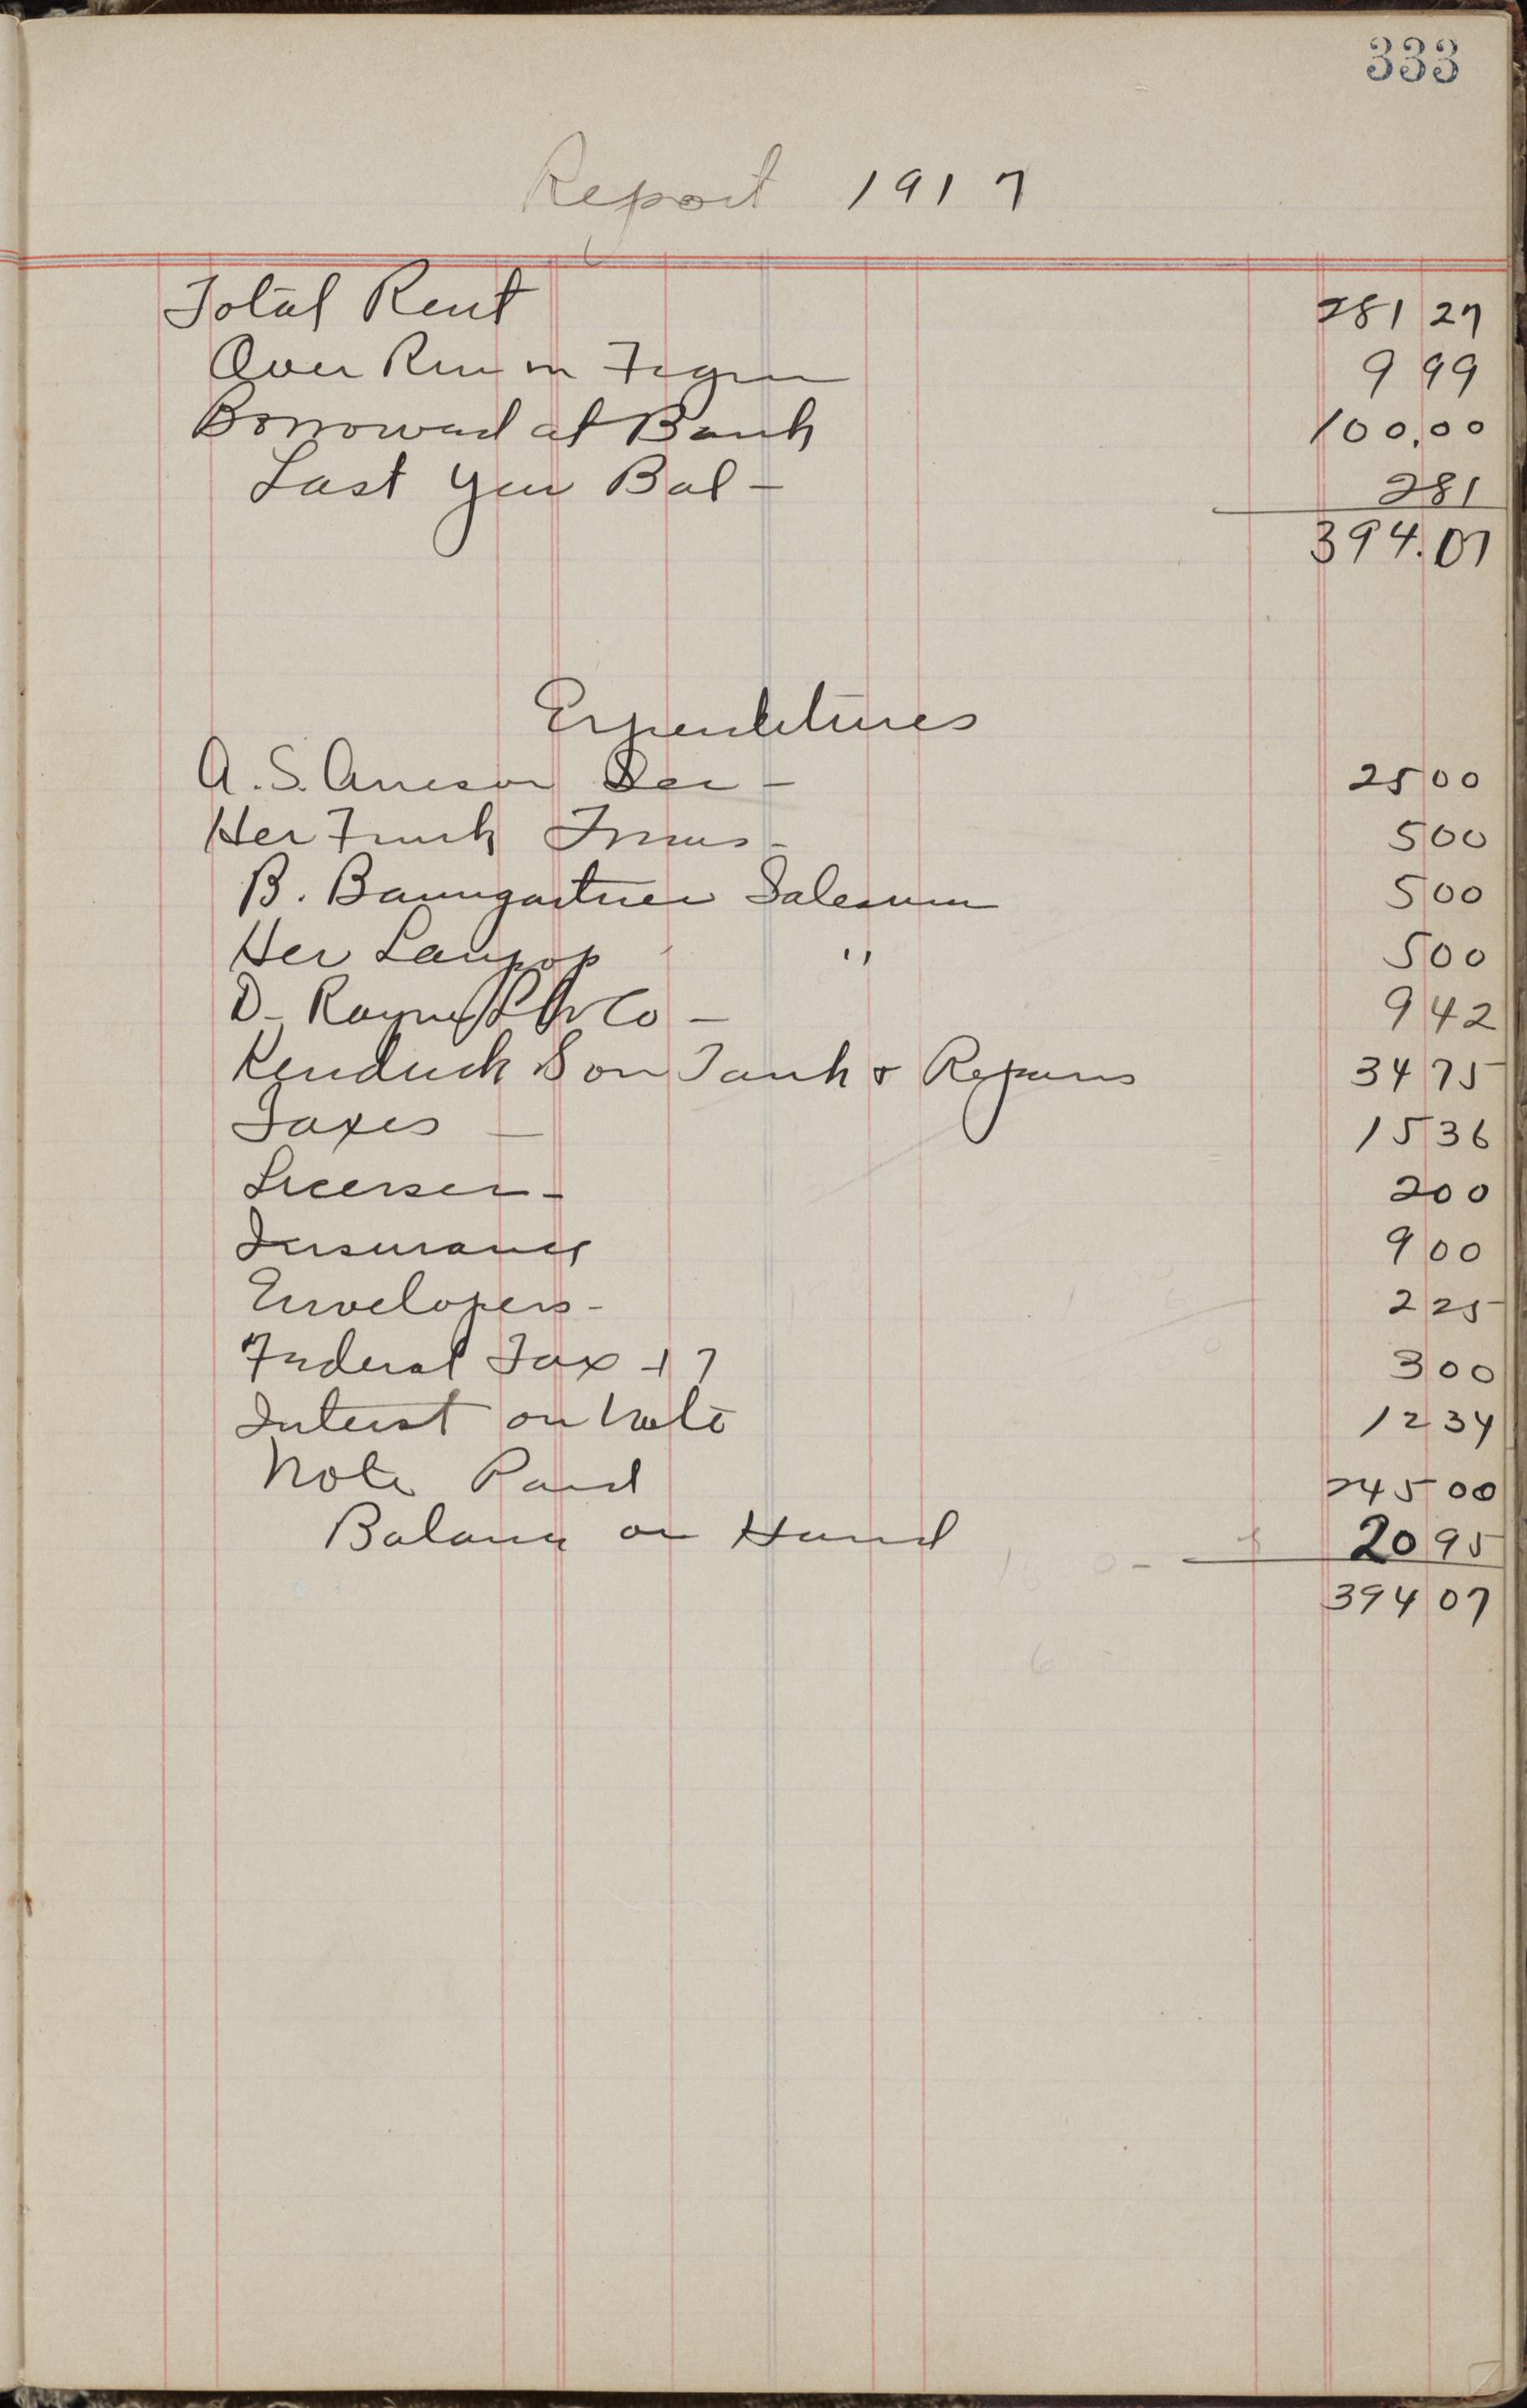 333
Report 1917
Total Rent 281 27
Over Run in 9 99
Borrowed at Bank 100.00
Last Year Bal - 2 81
394.07
Expenditures
A. S. Arneson Sec - 25 00
Her Funk Treas - 5 00
B. Baumgartner Salesman 5 00
Her Langop " 5 00
D. Co - 9 42
Kendrick Son Tank & Repairs 34 75
Taxes - 15 36
Licenses - 2 00
Insurance 9 00
Envelopers - 2 25
Federal Tax 3 00
Interest on Note 12 34
Note Paid 245 00
Balance on Hand 20 95
394 07